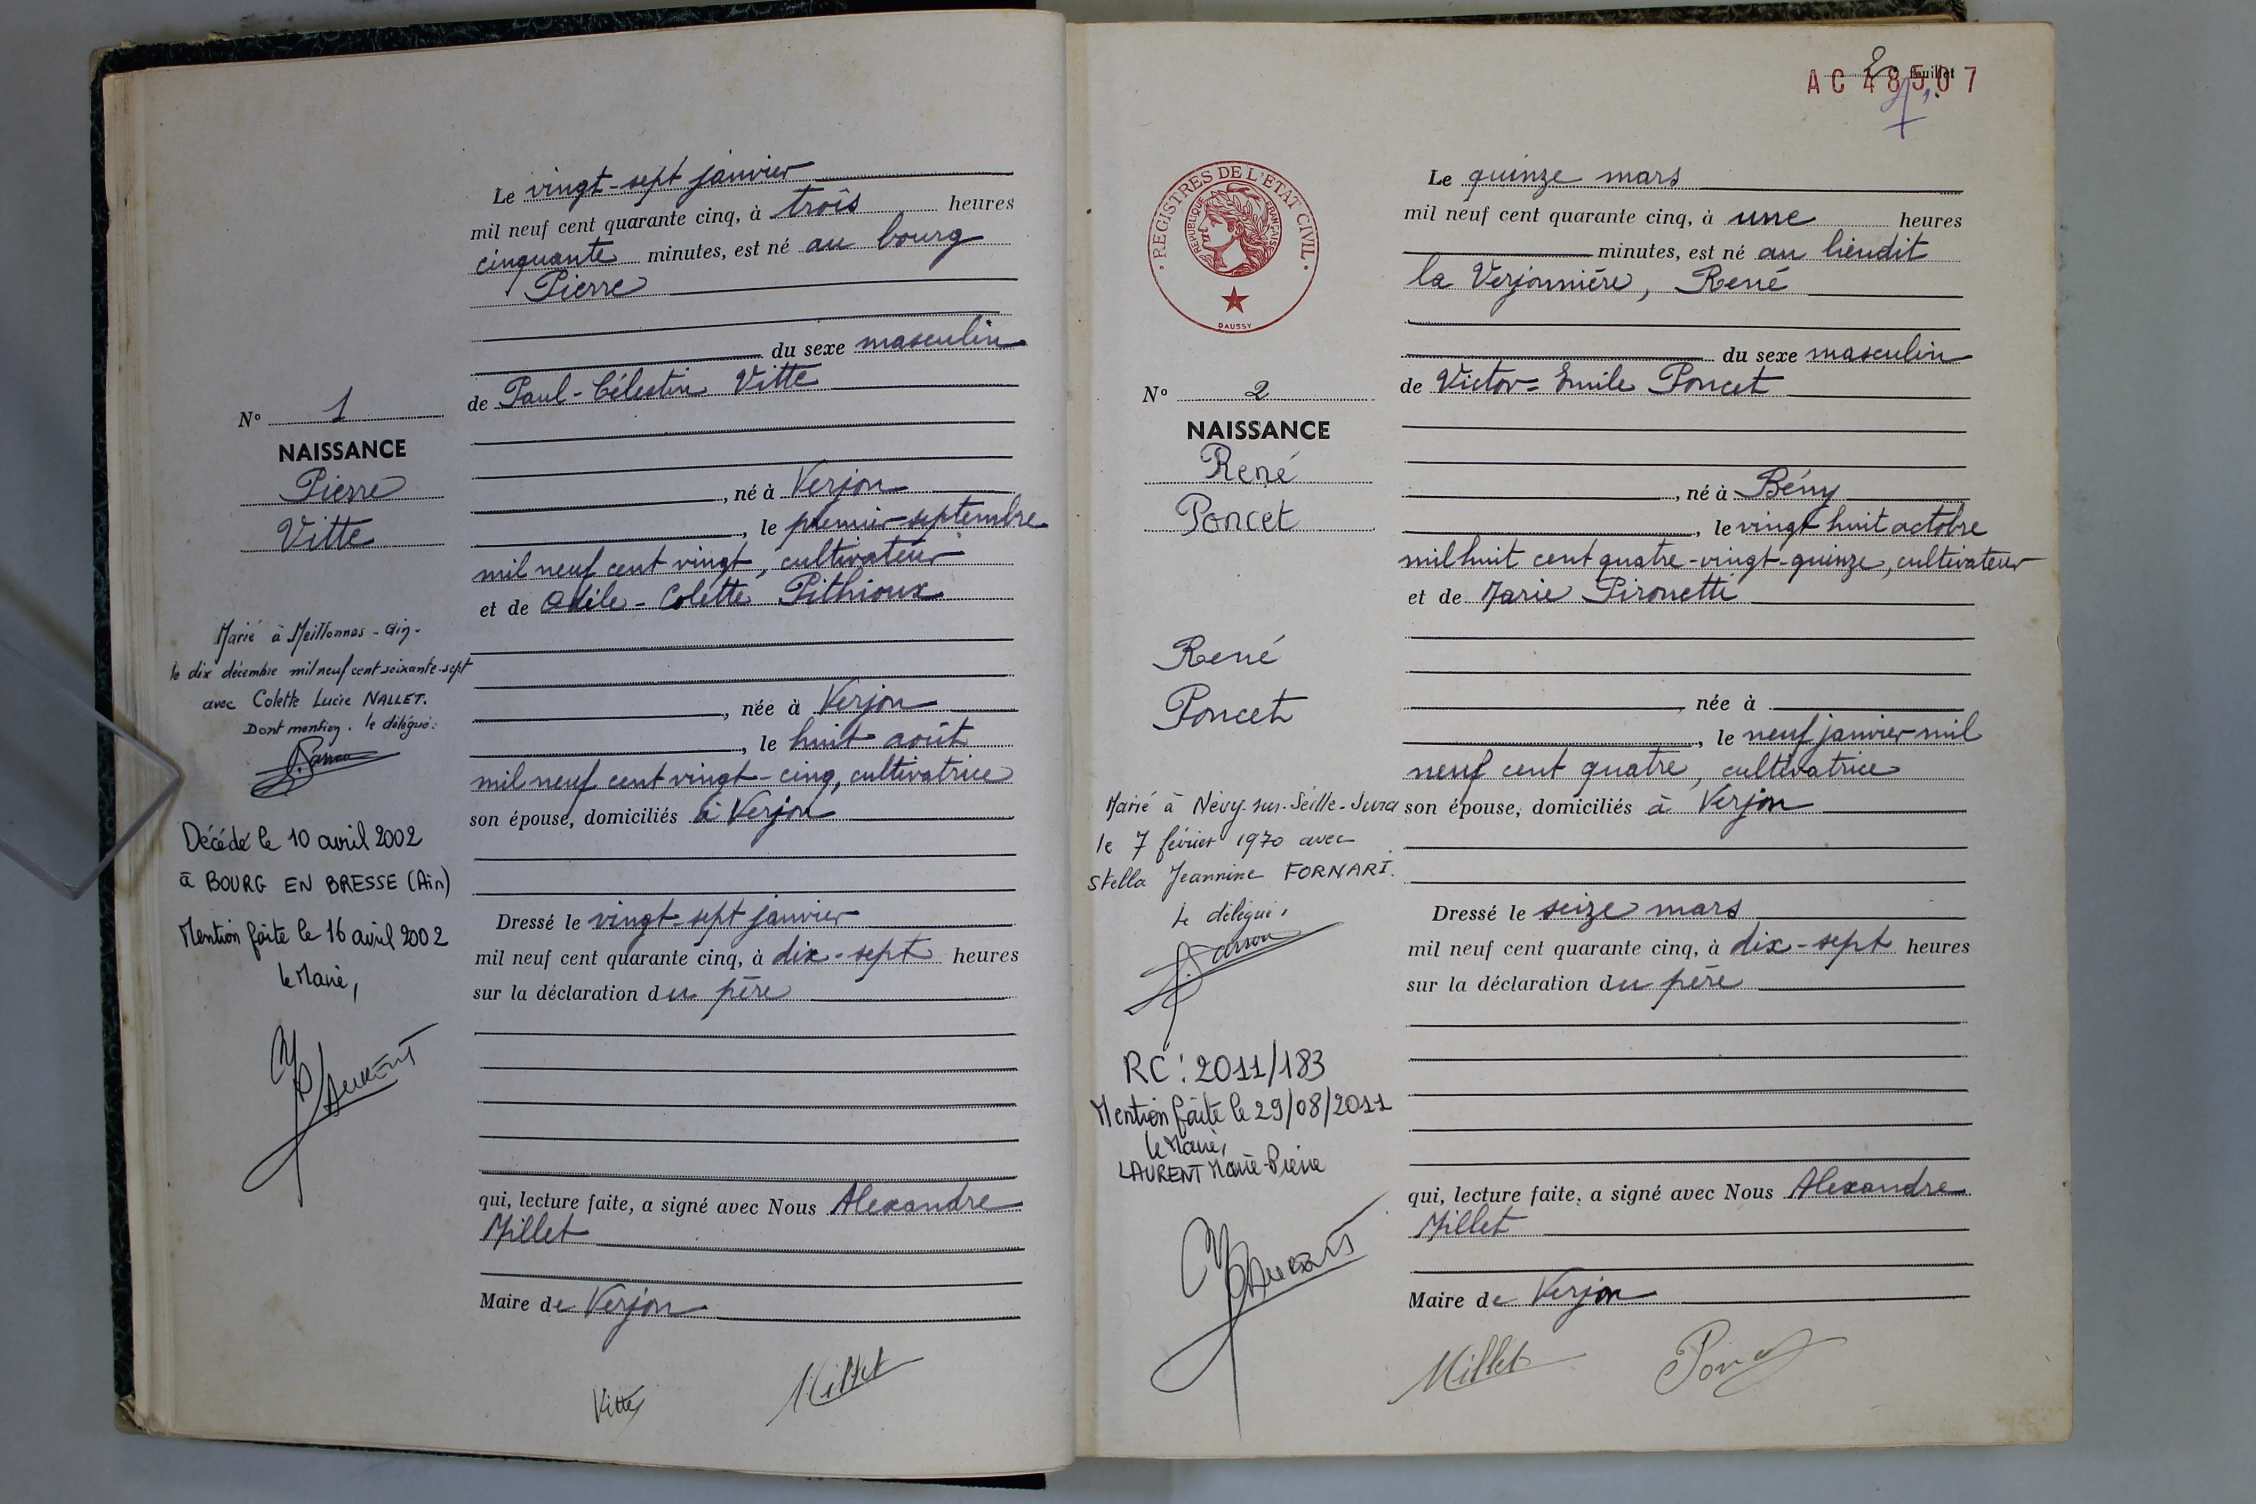 Le vingt-sept janvier
mil neuf cent quarante cinq, à trois heures
cinquante minutes, est né au bourg
Pierre
du sexe masculin
de Paul-Célestin Vitte
, né à Verjon
, le premier septembre
mil neuf cent vingt, cultivateur
et de Odile-Colette Pithioux
, née à Verjon
, le huit août
mil neuf cent vingt-cinq, cultivatrice
son épouse, domiciliés à Verjon
Dressé le vingt-sept janvier
mil neuf cent quarante cinq, à dix-sept heures
sur la déclaration du père
qui, lecture faite, a signé avec Nous Alexandre
Millet
Maire de Verjon
Vitte Millet
N° 1
NAISSANCE
Pierre
Vitte
Marié à Meillonnas - Ain -
le dix décembre mil neuf cent soixante-sept
avec Colette Lucie NALLET.
Dont mention. le délégué:
Décédé le 10 avril 2002
à BOURG EN BRESSE (Ain)
Mention faite le 16 avril 2002
le Maire,
LAURENT
2e feuillet
AC 48507
REGISTRES DE L'ETAT CIVIL
REPUBLIQUE FRANÇAISE
DAUSSY
Le quinze mars
mil neuf cent quarante cinq, à une heures
minutes, est né au lieudit
la Verjonnière, René
du sexe masculin
de Victor-Emile Poncet
, né à Bény
, le vingt huit octobre
mil huit cent quatre-vingt-quinze, cultivateur
et de Marie Pironetti
, née à
, le neuf janvier mil
neuf cent quatre, cultivatrice
son épouse, domiciliés à Verjon
Dressé le seize mars
mil neuf cent quarante cinq, à dix-sept heures
sur la déclaration du père
qui, lecture faite, a signé avec Nous Alexandre
Millet
Maire de Verjon
Millet Poncet
N° 2
NAISSANCE
René
Poncet
René
Poncet
Marié à Névy-sur-Seille-Jura
le 7 février 1970 avec
Stella Jeannine FORNARI.
Le délégué,
RC : 2011/183
Mention faite le 29/08/2011
le Maire,
LAURENT Marie-Pierre
LAURENT